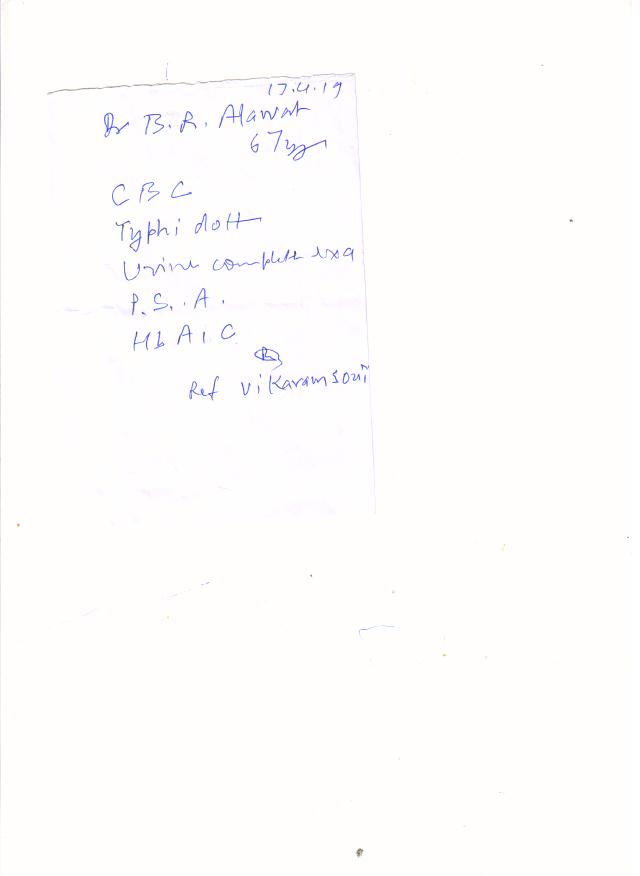 17.4.19
Dr B.R. Alawat
67yr
CBC
Typhi dott
Urine complete exa
P.S.A.
HbA1C
Ref vikaram soni